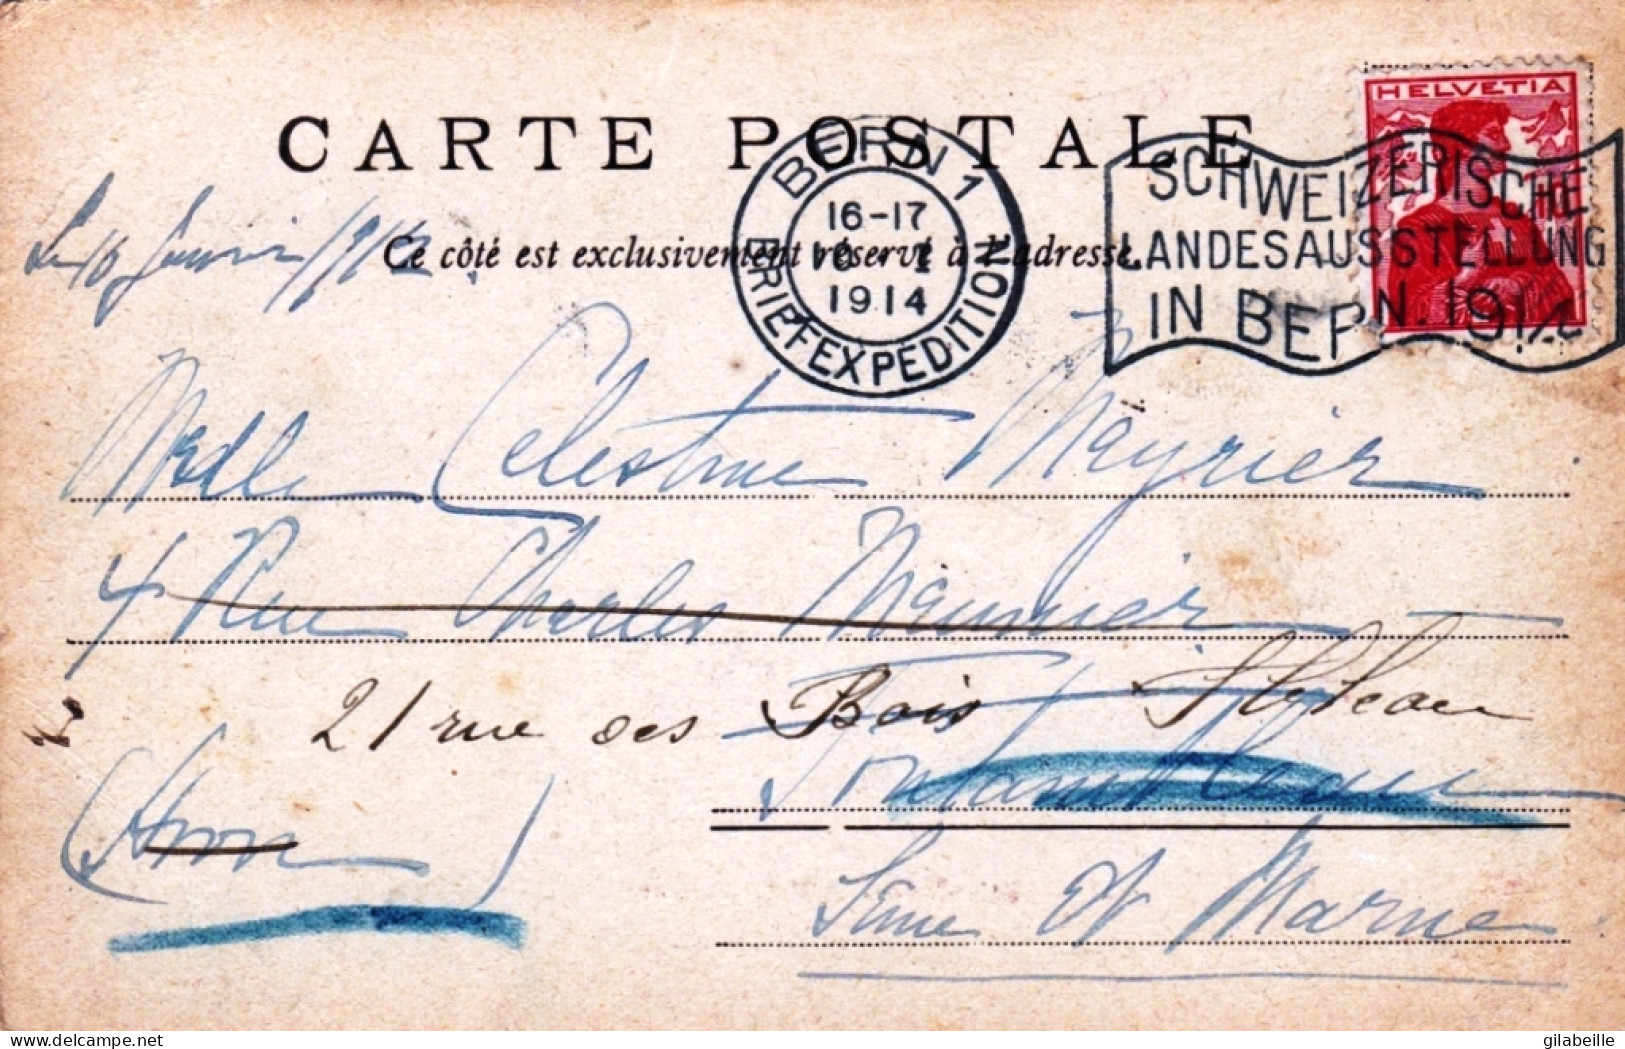 CARTE POSTALE
HELVETIA
BERN 1
16-17
1914
BRIEFEXPEDITION
SCHWEIZERISCHE
LANDESAUSSTELLUNG
IN BERN. 1914
Le 16 Janvier 1912
Ce côté est exclusivement réservé à l'adresse.
Medle Celestine Meyrier
4 Rue Charles Meunier
21 rue des Bois
Fontainebleau
(Avon)
Seine et Marne
delcampe.net
gilabeille